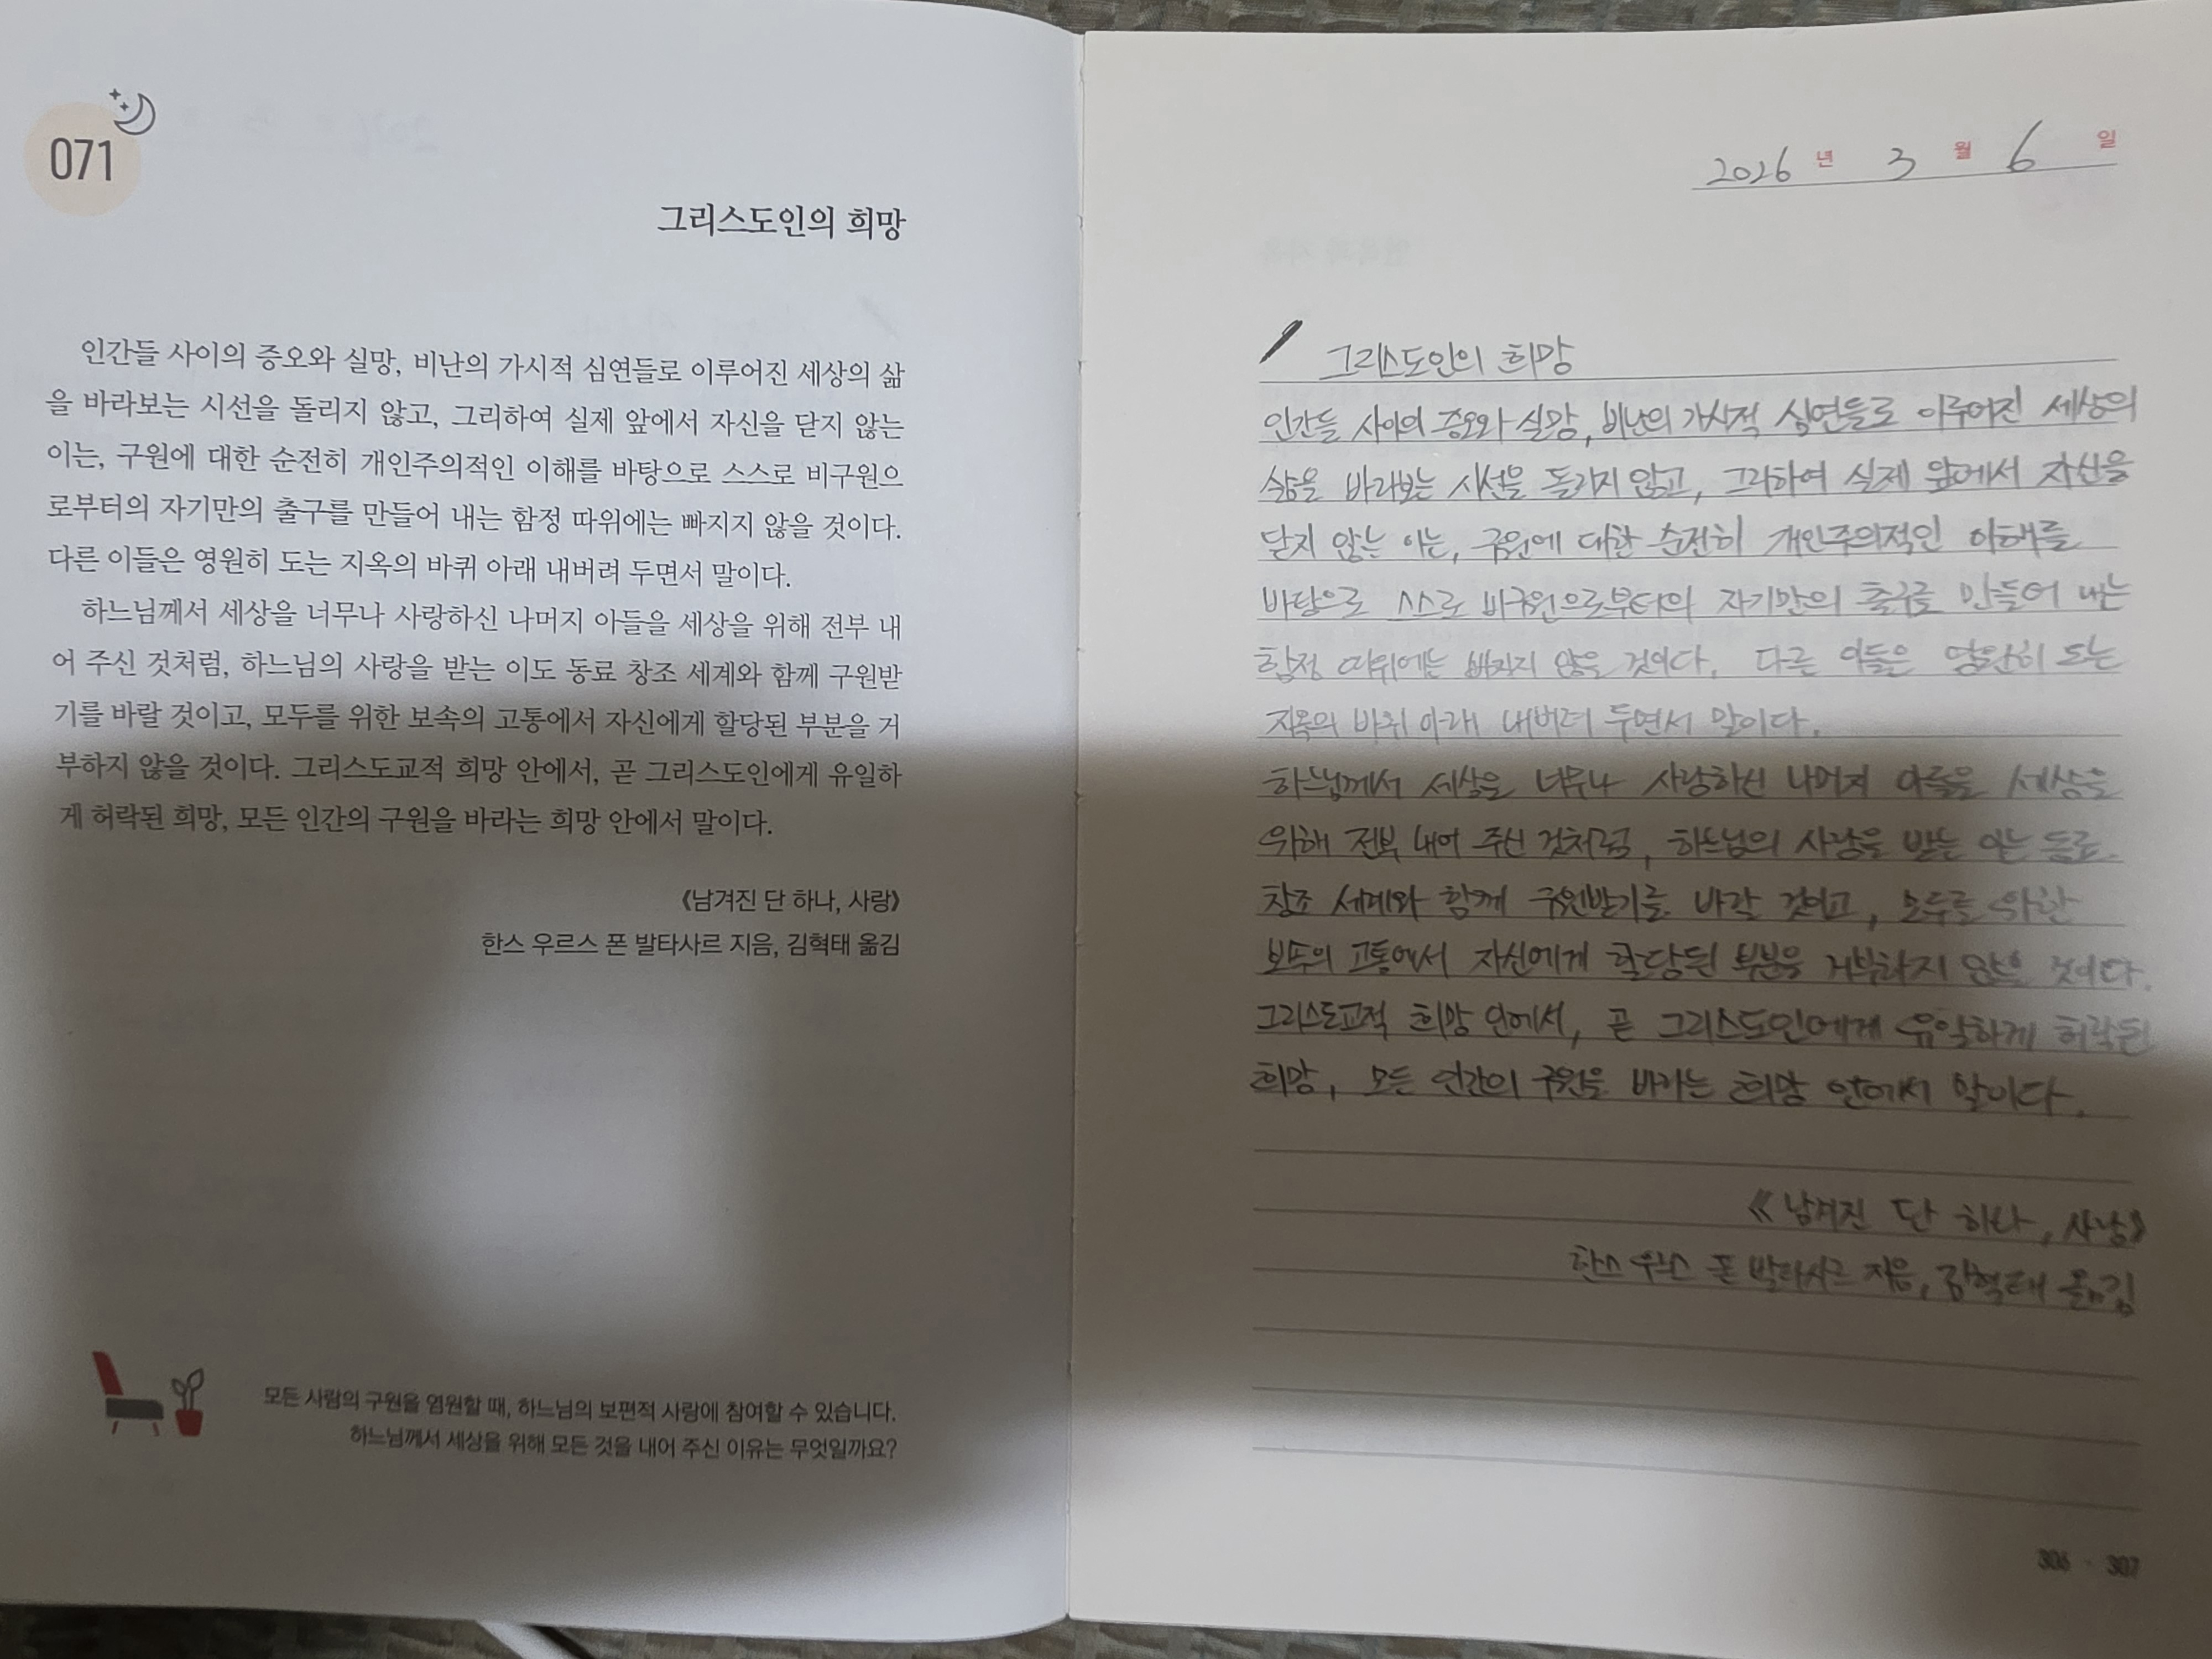 071
그리스도인의 희망
인간들 사이의 증오와 실망, 비난의 가시적 심연들로 이루어진 세상의 삶
을 바라보는 시선을 돌리지 않고, 그리하여 실제 앞에서 자신을 닫지 않는
이는, 구원에 대한 순전히 개인주의적인 이해를 바탕으로 스스로 비구원으
로부터의 자기만의 출구를 만들어 내는 함정 따위에는 빠지지 않을 것이다.
다른 이들은 영원히 도는 지옥의 바퀴 아래 내버려 두면서 말이다.
하느님께서 세상을 너무나 사랑하신 나머지 아들을 세상을 위해 전부 내
어 주신 것처럼, 하느님의 사랑을 받는 이도 동료 창조 세계와 함께 구원받
기를 바랄 것이고, 모두를 위한 보속의 고통에서 자신에게 할당된 부분을 거
부하지 않을 것이다. 그리스도교적 희망 안에서, 곧 그리스도인에게 유일하
게 허락된 희망, 모든 인간의 구원을 바라는 희망 안에서 말이다.
《남겨진 단 하나, 사랑》
한스 우르스 폰 발타사르 지음, 김혁태 옮김
모든 사람의 구원을 염원할 때, 하느님의 보편적 사랑에 참여할 수 있습니다.
하느님께서 세상을 위해 모든 것을 내어 주신 이유는 무엇일까요?
2026 년 3 월 6 일
그리스도인의 희망
인간들 사이의 증오와 실망, 비난의 가시적 심연들로 이루어진 세상의
삶을 바라보는 시선을 돌리지 않고, 그리하여 실제 앞에서 자신을
닫지 않는 이는, 구원에 대한 순전히 개인주의적인 이해를
바탕으로 스스로 비구원으로부터의 자기만의 출구를 만들어 내는
함정 따위에는 빠지지 않을 것이다. 다른 이들은 도는
지옥의 바퀴 아래 내버려 두면서 말이다.
하느님께서 세상을 너무나 사랑하신 나머지 아들을 세상을
위해 전부 내어 주신 것처럼, 하느님의 사랑을 받는 이는 동료
창조 세계와 함께 구원받기를 바랄 것이고, 모두를 위한
보속의 고통에서 자신에게 할당된 부분을 거부하지 않을 것이다.
그리스도교적 희망 안에서, 곧 그리스도인에게 유일하게 허락된
희망, 모든 인간의 구원을 바라는 희망 안에서 말이다.
《남겨진 단 하나, 사랑》
한스 우르스 폰 발타사르 지음, 김혁태 옮김
306 · 307